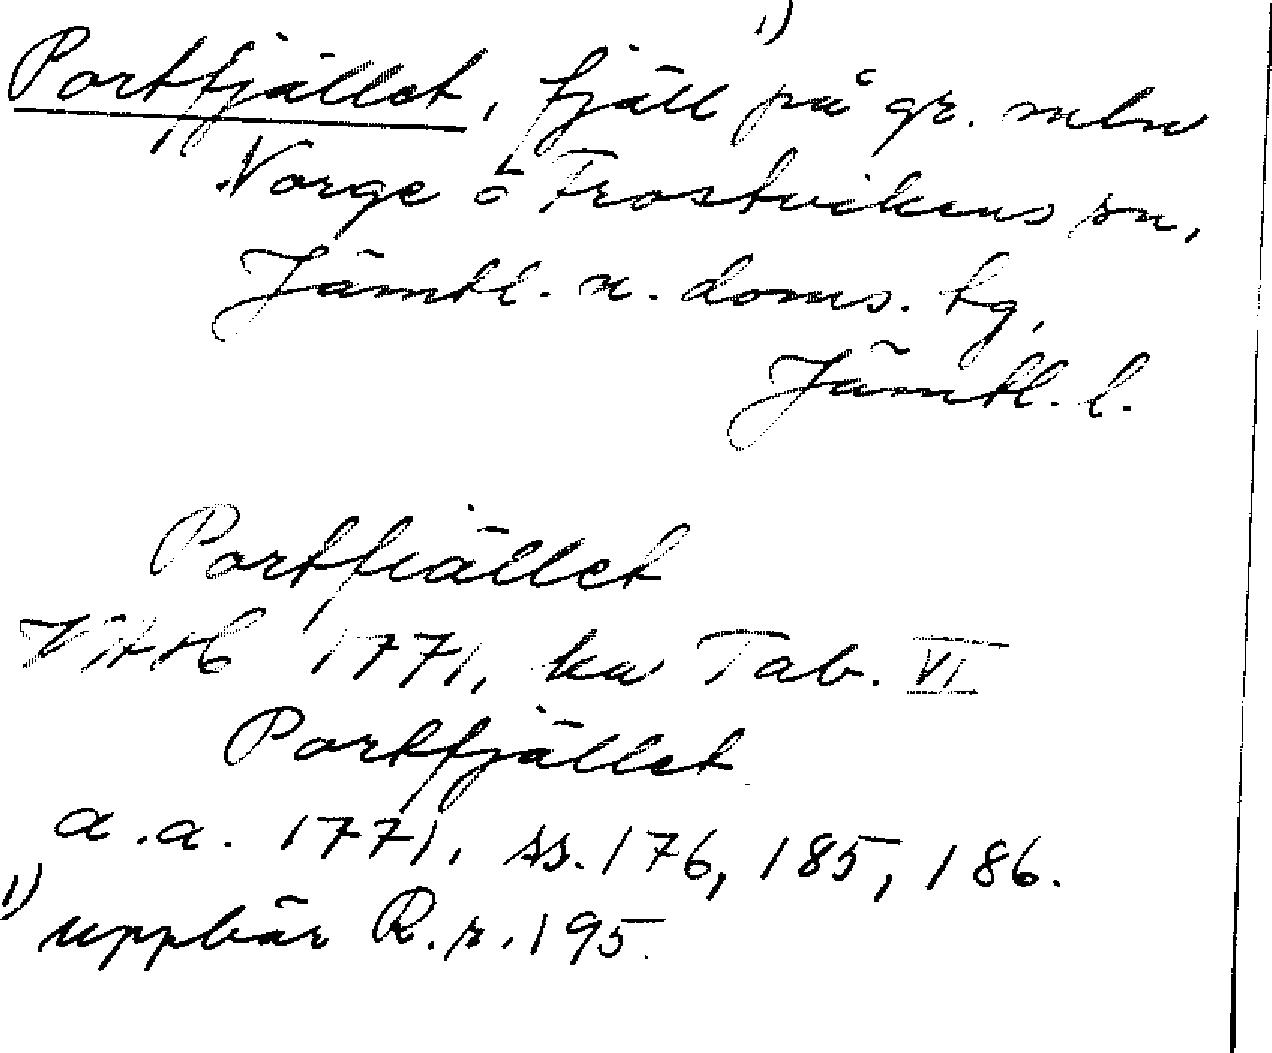 Portfjället, fjäll ¹⁾ på gr. mln
Norge o Frostvikens sn,
Jämtl. n. doms. tg,
Jämtl. l.
Portfiället
1771, ka Tab. VI
Portfjället
a.a. 1771, ss. 176, 185, 186.
¹⁾ uppbär R.r. 195.